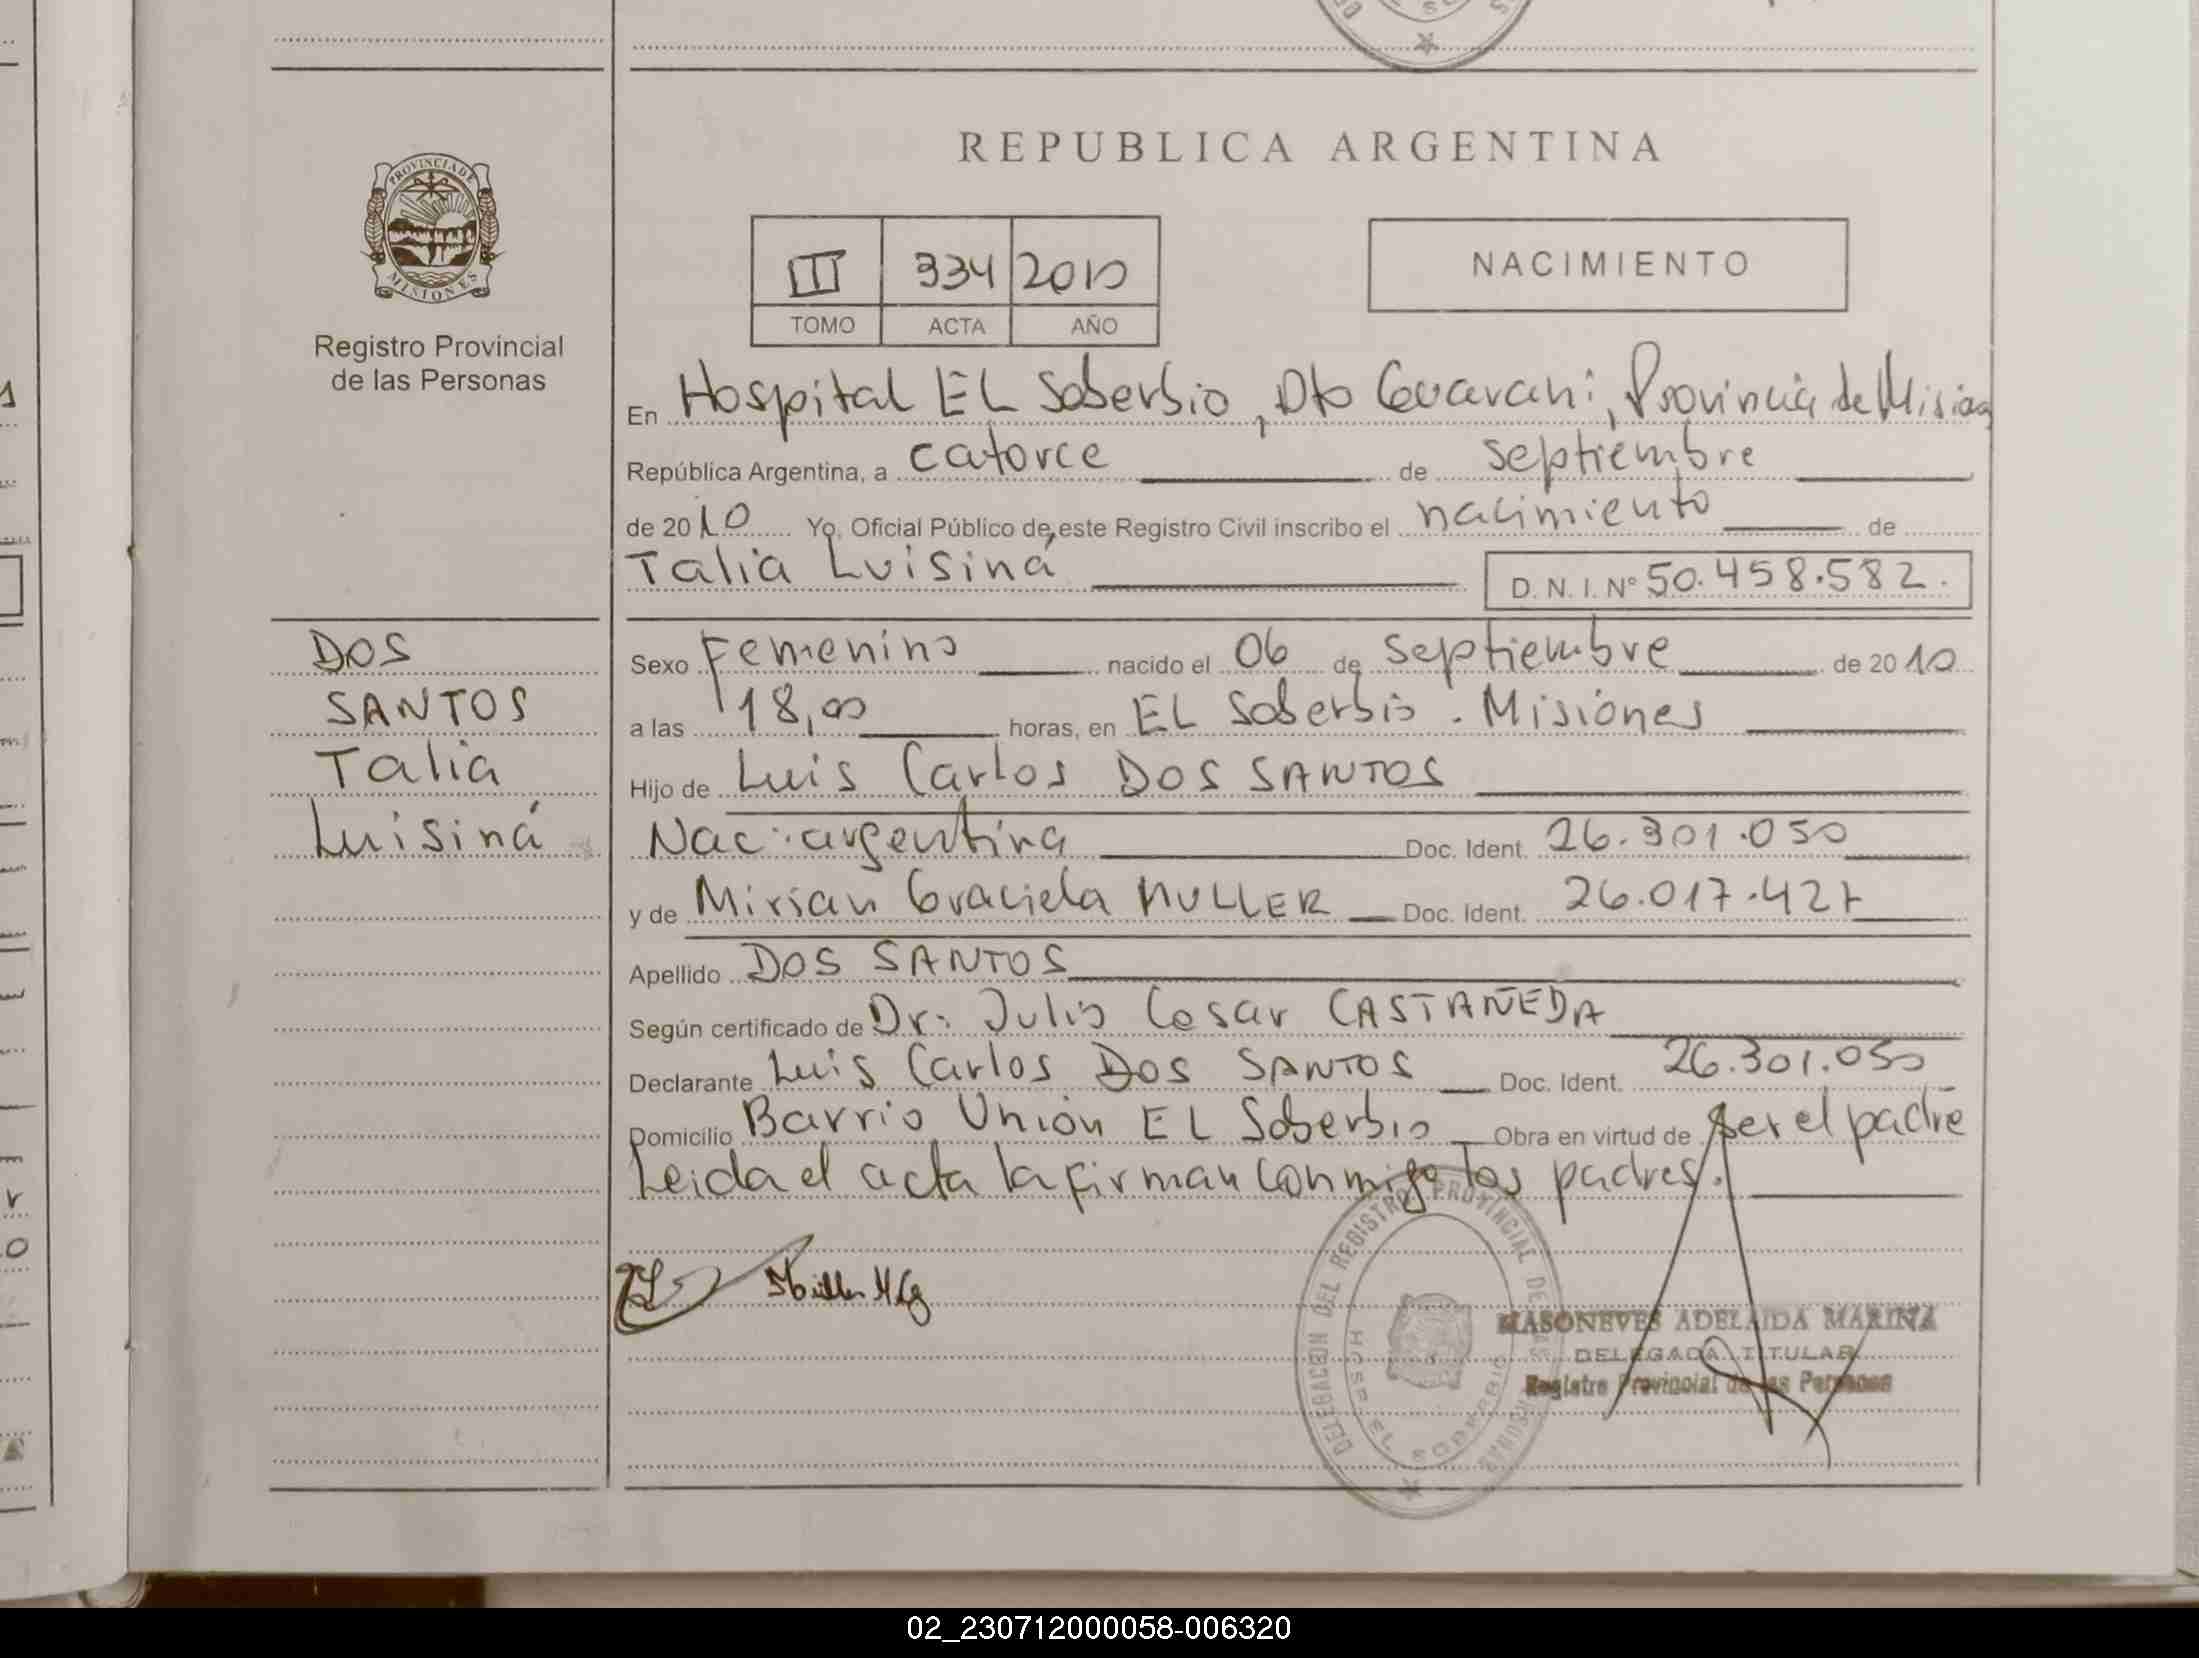 REPUBLICA ARGENTINA
PROVINCIA DE
MISIONES
Registro Provincial
de las Personas
III 334 2010
TOMO ACTA AÑO
NACIMIENTO
En Hospital EL Soberbio, Dto Guarani, Provincia de Misiones
República Argentina, a catorce de septiembre
de 2010 Yo, Oficial Público de este Registro Civil inscribo el nacimiento de
Talia Luisiná D. N. I. Nº 50.458.582.
DOS
SANTOS
Talia
Luisiná
Sexo Femenino nacido el 06 de septiembre de 2010
a las 18,00 horas, en EL Soberbio . Misiones
Hijo de Luis Carlos DOS SANTOS
Nac. argentina Doc. Ident. 26.301.050
y de Mirian Graciela MULLER Doc. Ident. 26.017.427
Apellido DOS SANTOS
Según certificado de Dr: Julio Cesar CASTAÑEDA
Declarante Luis Carlos DOS SANTOS Doc. Ident. 26.301.050
Domicilio Barrio Unión EL Soberbio Obra en virtud de ser el padre
Leida el acta la firman conmigo los padres.
DELEGACION DEL REGISTRO PROVINCIAL DE LAS PERSONAS
HOSP. EL SOBERBIO
MASONEVES ADELAIDA MARINA
DELEGADA TITULAR
Registro Provincial de las Personas
02_230712000058-006320